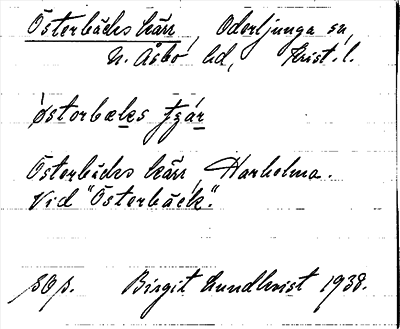 Österbäcks kärr, Oderljunga sn,
N. Åsbo hd, Krist. l.
Österbäcks kärr, Harholma.
Vid "Österbäck".
Birgit Lundkvist 1938.